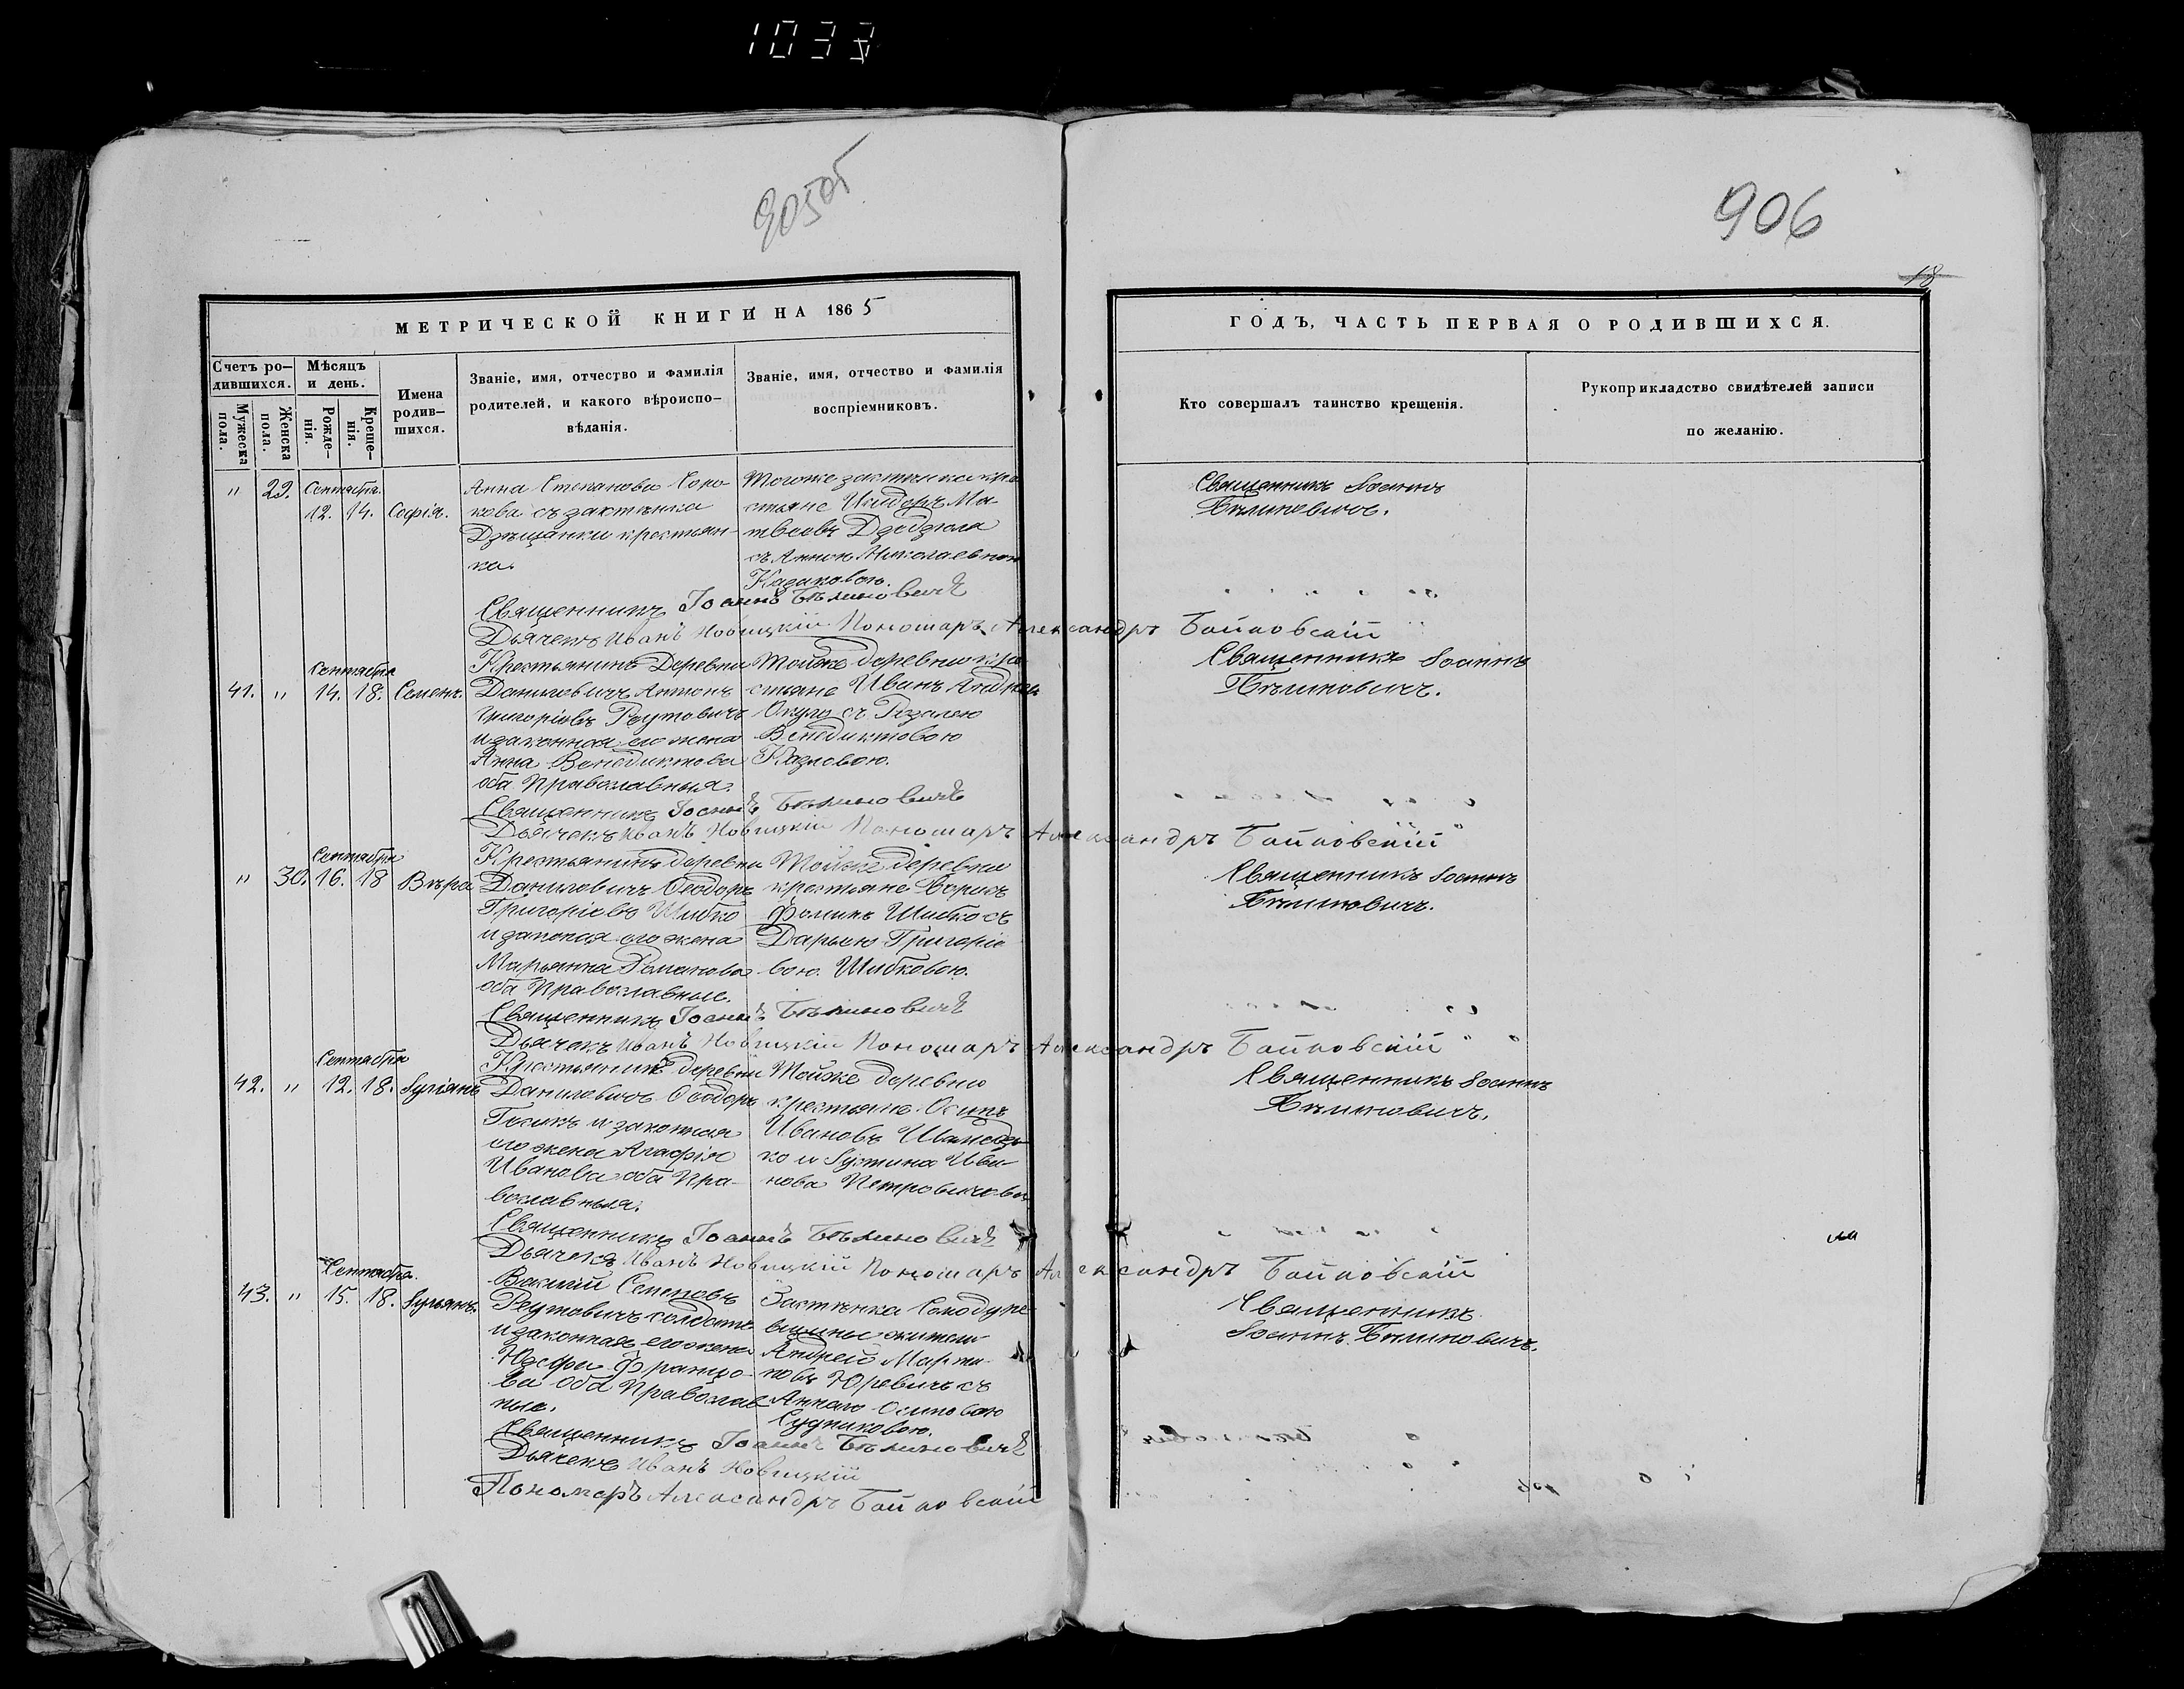 1033
905 об
906
18
МЕТРИЧЕСКОЙ КНИГИ НА 1865
ГОДЪ, ЧАСТЬ ПЕРВАЯ О РОДИВШИХСЯ.
Счетъ ро-
дившихся.
Мужеска
пола.
Женска
пола.
Мѣсяцъ
и день.
Рожде-
нія.
Креще-
нія.
Имена
родив-
шихся.
Званіе, имя, отчество и фамилія
родителей, и какого вѣроиспо-
вѣданія.
Званіе, имя, отчество и фамилія
воспріемниковъ.
Кто совершалъ таинство крещенія.
Рукоприкладство свидѣтелей записи
по желанію.
" 29. Сентября.
12. 14. Софія.
Анна Степанова Соко-
кова съ застѣнка
крестьян-
ка.
Тогоже застѣнка кре-
стьяне Исидоръ Ма-
твеевъ Дзедзюла
съ Анною Николаевною
Казаковою.
Священникъ Іоаннъ
Бѣлиновичъ.
Священникъ Іоаннъ Бѣлиновичъ
Дьячекъ Иванъ Новицкій Пономарь Александръ Байковскій
Сентября
41. " 14. 18. Семенъ.
Крестьянинъ Деревни
Даниловичъ Антонъ
Григоріевъ Реутовичъ
и законная его жена
Анна Венедиктова
оба Православныя.
Тойже деревни кре-
стьяне Иванъ Андреевъ
Окула съ Розалею
Венедиктовою
Козловою.
Священникъ Іоаннъ
Бѣлиновичъ.
Священникъ Іоаннъ Бѣлиновичъ
Дьячекъ Иванъ Новицкій Пономарь Александръ Байковскій
Сентября
" 30. 16. 18 Вѣра
Крестьянинъ деревни
Даниловичъ Ѳеодоръ
Григоріевъ Шибко
и законая его жена
Марьянна Романова
оба Православные.
Тойже деревни
крестьяне Борисъ
Фоминъ Шибко съ
Дарьею Григоріе
вою Шибковою.
Священникъ Іоаннъ
Бѣлиновичъ.
Священникъ Іоаннъ Бѣлиновичъ
Дьячекъ Иванъ Новицкій Пономарь Александръ Байковскій
Сентября
42. " 12. 18. Іуліанъ
Крестьянинъ деревни
Даниловичъ Ѳеодоръ
и законная
его жена Агафія
Иванова оба Пра-
вославныя.
Тойже деревни
крестьяне Осипъ
Ивановъ
ко и Іустина Ива-
нова Петровичева
Священникъ Іоаннъ
Бѣлиновичъ.
Священникъ Іоаннъ Бѣлиновичъ
Дьячекъ Иванъ Новицкій Пономарь Александръ Байковскій
Сентября.
43. " 15. 18. Іульянъ.
Василій Семеновъ
Реутовичъ солдатъ
и законная его жена
Юзефа Францо-
ва оба Православ
ные.
Застѣнка
вщины жители
Андрей Марти-
новъ Юревичъ съ
Анною Осиповою
Судниковою.
Священникъ
Іоаннъ Бѣлиновичъ.
Священникъ Іоаннъ Бѣлиновичъ
Дьячекъ Иванъ Новицкій
Пономарь Александръ Байковскій